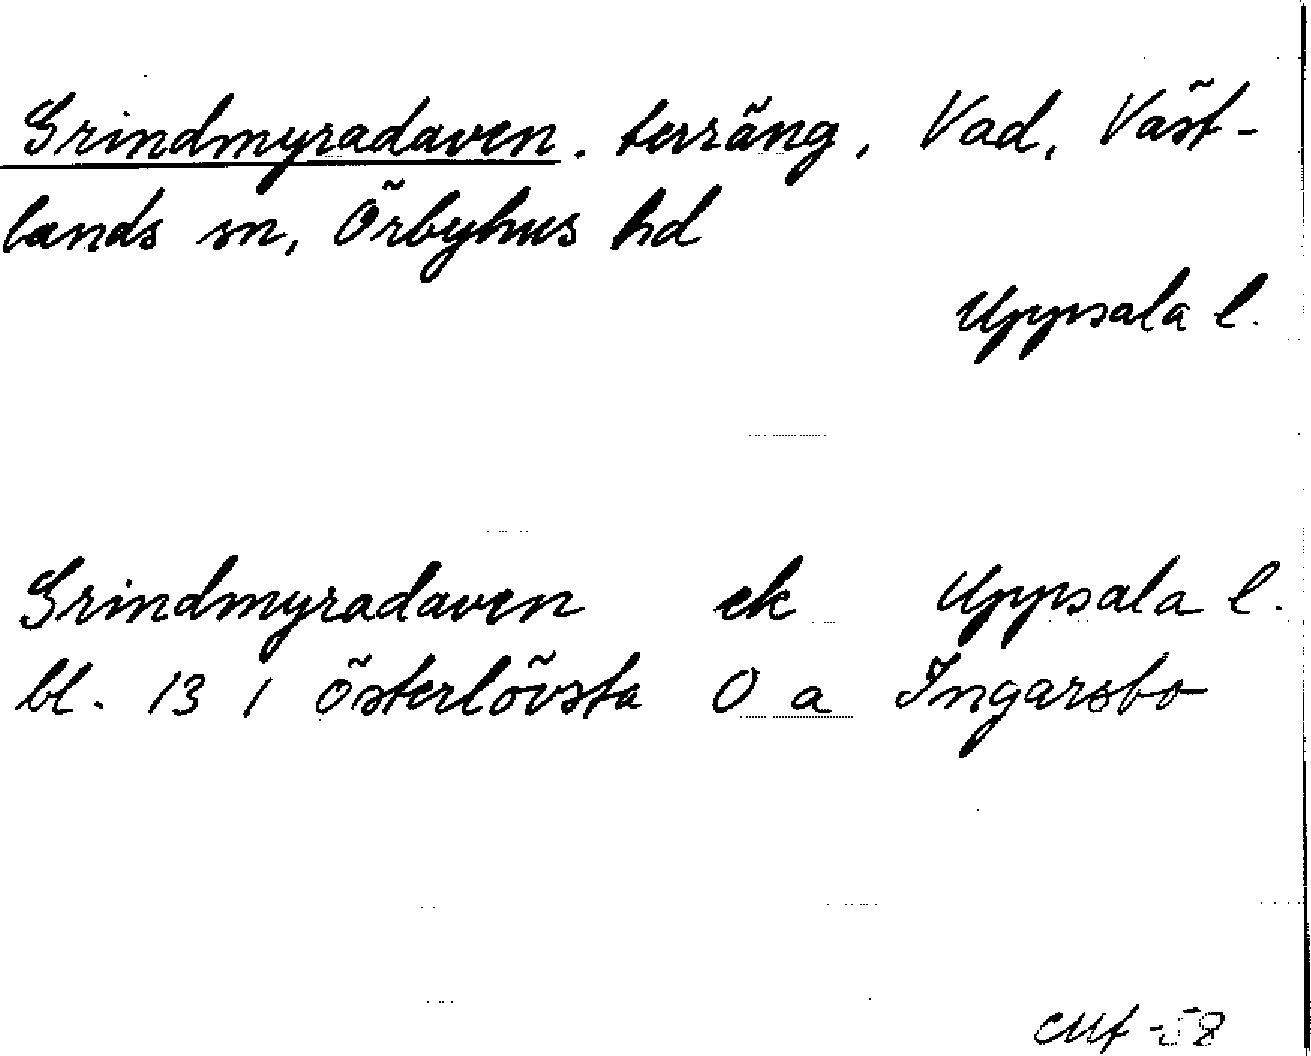 Grindmyradaven. terräng, Vad, Väst-
lands sn, Örbyhus hd
Uppsala l.
Grindmyradaven ek Uppsala l.
bl. 13, Österlövsta O a Ingarsbo
-58